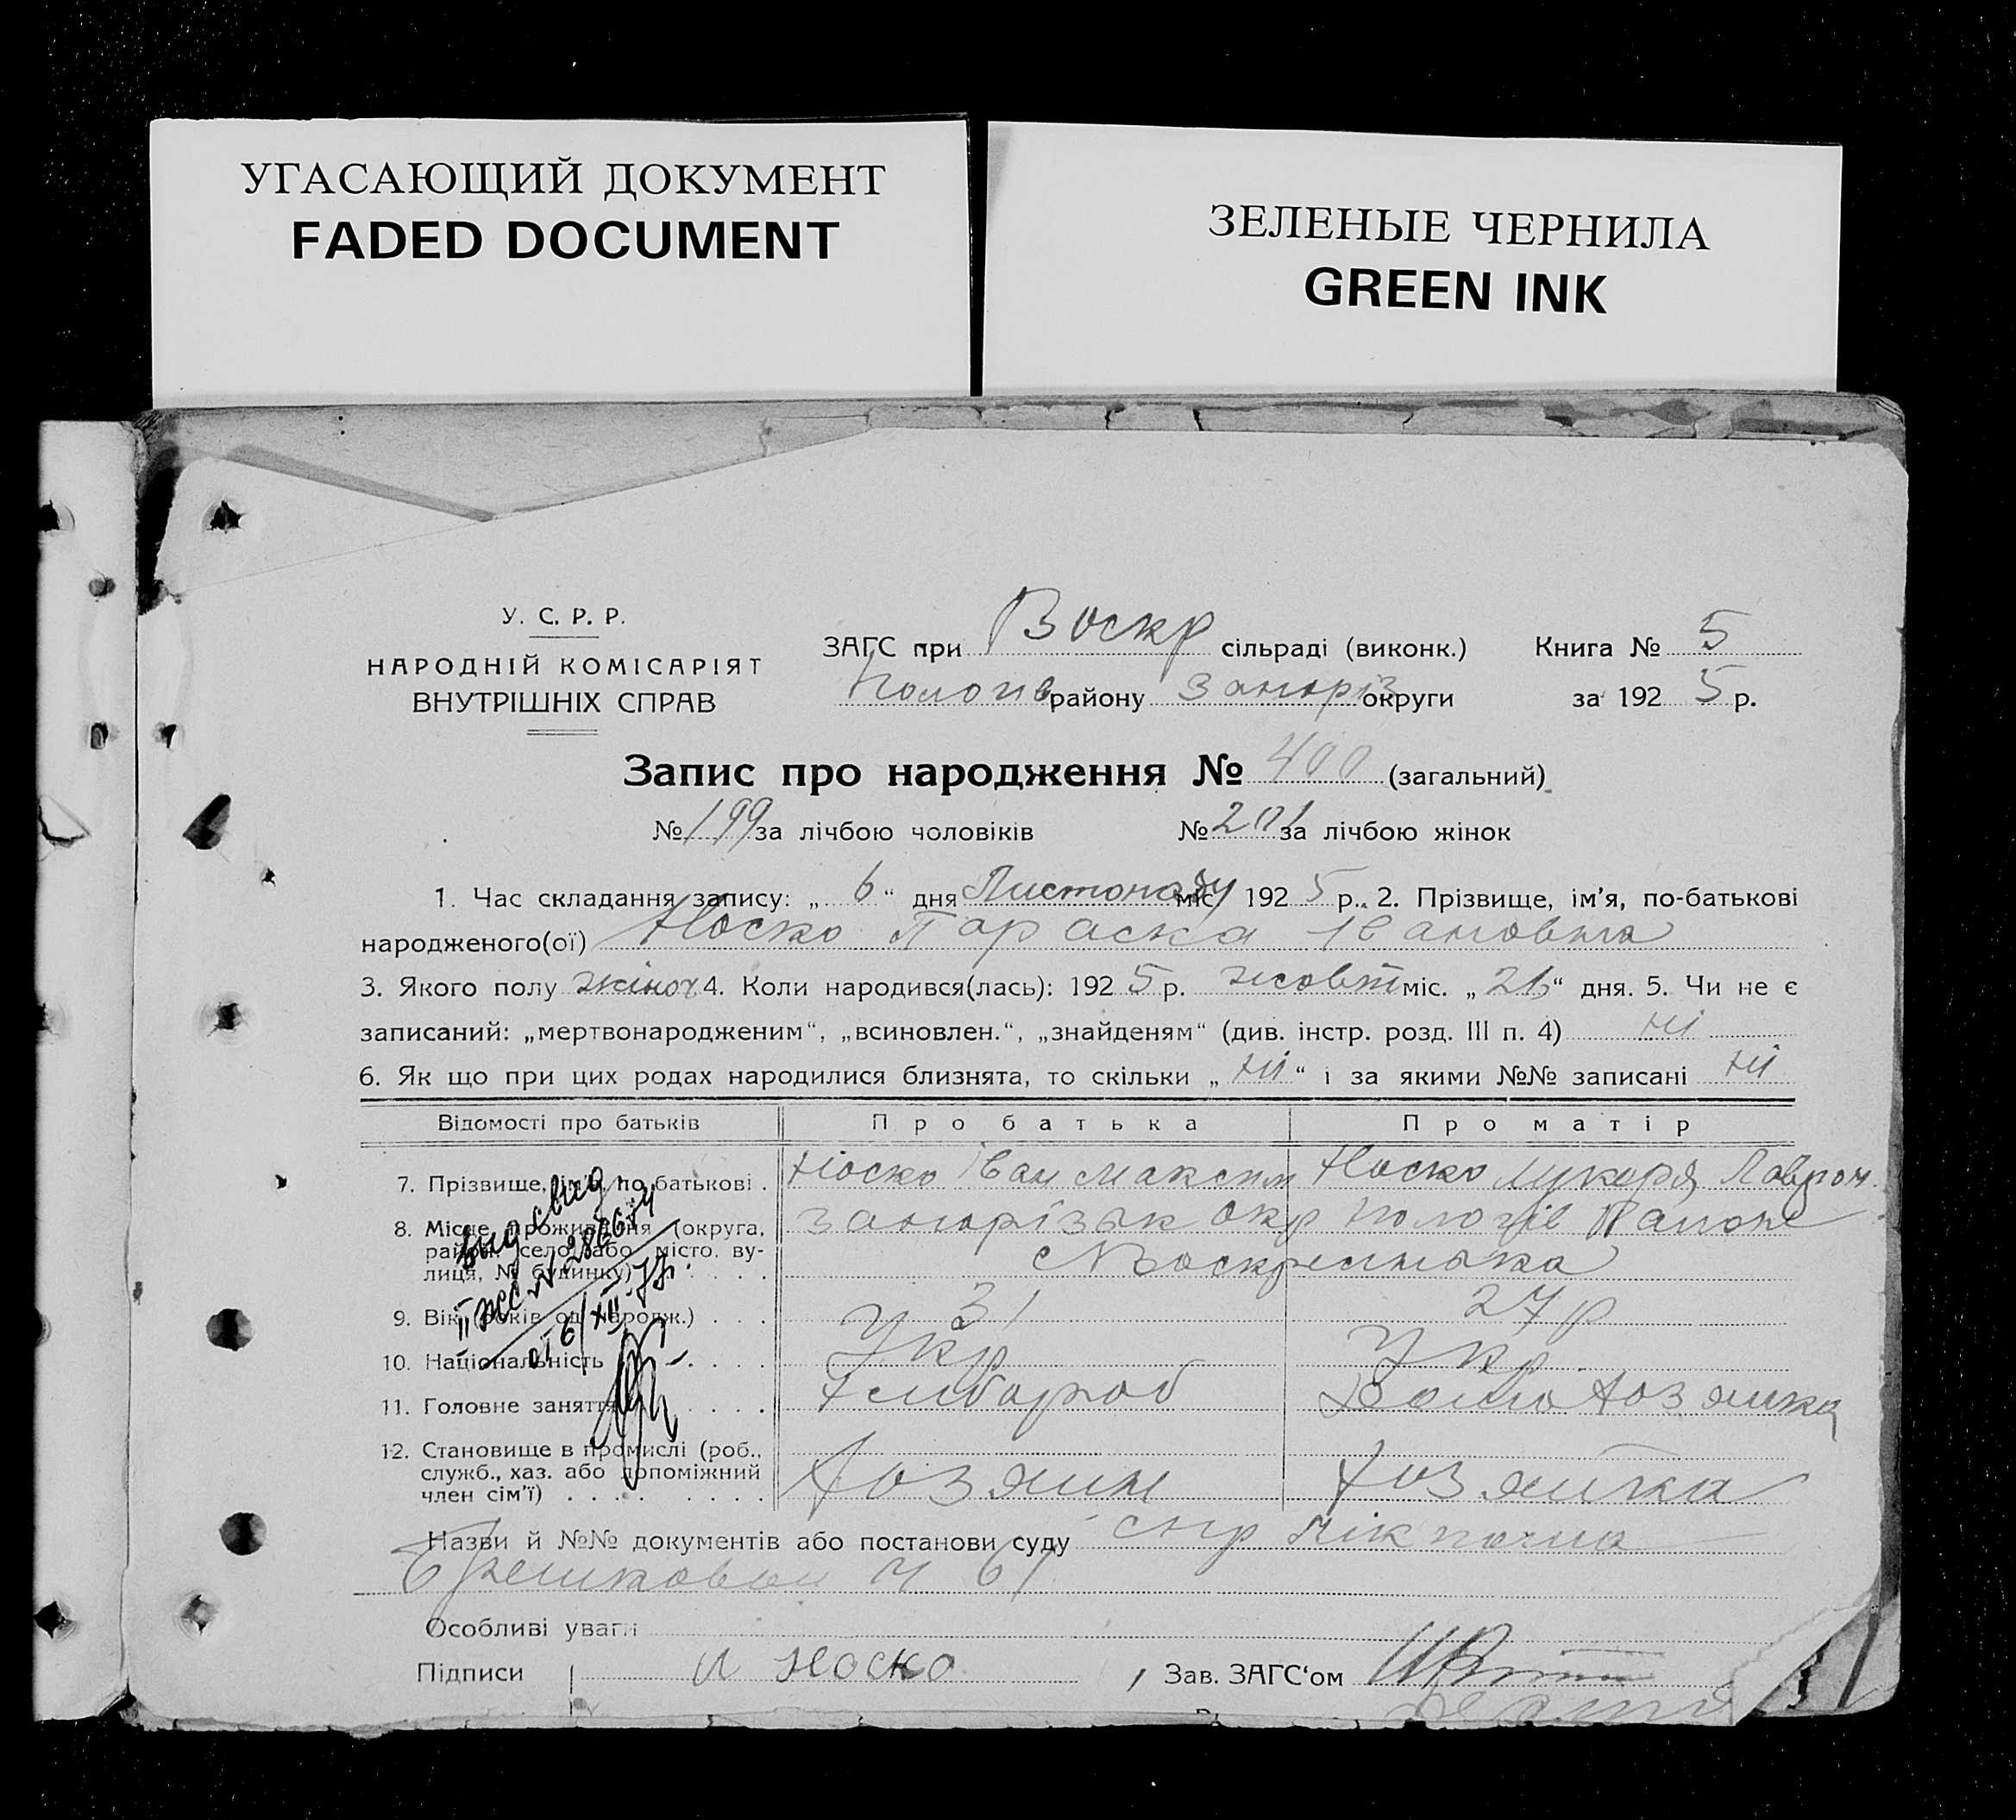 УГАСАЮЩИЙ ДОКУМЕНТ
FADED DOCUMENT
ЗЕЛЕНЫЕ ЧЕРНИЛА
GREEN INK
У. С. Р. Р.
НАРОДНІЙ КОМІСАРІЯТ
ВНУТРІШНІХ СПРАВ
ЗАГС при Воскр сільраді (виконк.) Книга № 5
Пологів району Запоріз округи за 192 5 р.
Запис про народження № 400 (загальний)
№ 199 за лічбою чоловіків № 201 за лічбою жінок
1. Час складання запису: „ 6 “ дня Листопаду міс. 192 5 р. 2. Прізвище, ім'я, по-батькові
народженого(ої) Носко Параска Івановна
3. Якого полу жіноч 4. Коли народився(лась): 192 5 р. жовт міс. „ “ дня. 5. Чи не є
записаний: „мертвонародженим“, „всиновлен.“, „знайденям“ (див. інстр. розд. III п. 4) ні
6. Як що при цих родах народилися близнята, то скільки „ ні “ і за якими №№ записані ні
Відомості про батьків Про батька Про матір
7. Прізвище, ім'я, по-батькові . Носко Іван Максим Носко Лукеря Лавром.
8. Місце проживання (округа, район, село, або місто, вулиця, № будинку) Запорізьк окр Пологів
9. Вік (років од народж.) . . . 31 27 р
10. Національність . . . . Укр Укр.
11. Головне заняття . . . . Хлібороб Хозяйка
12. Становище в промислі (роб.,
служб., хаз. або допоміжний
член сім'ї) . . . . Хозяин Хозяйка
Назви й №№ документів або постанови суду
61
Особливі уваги
Підписи И Носко Зав. ЗАГС'ом
вид свид
II ЖС №
от 6/XII